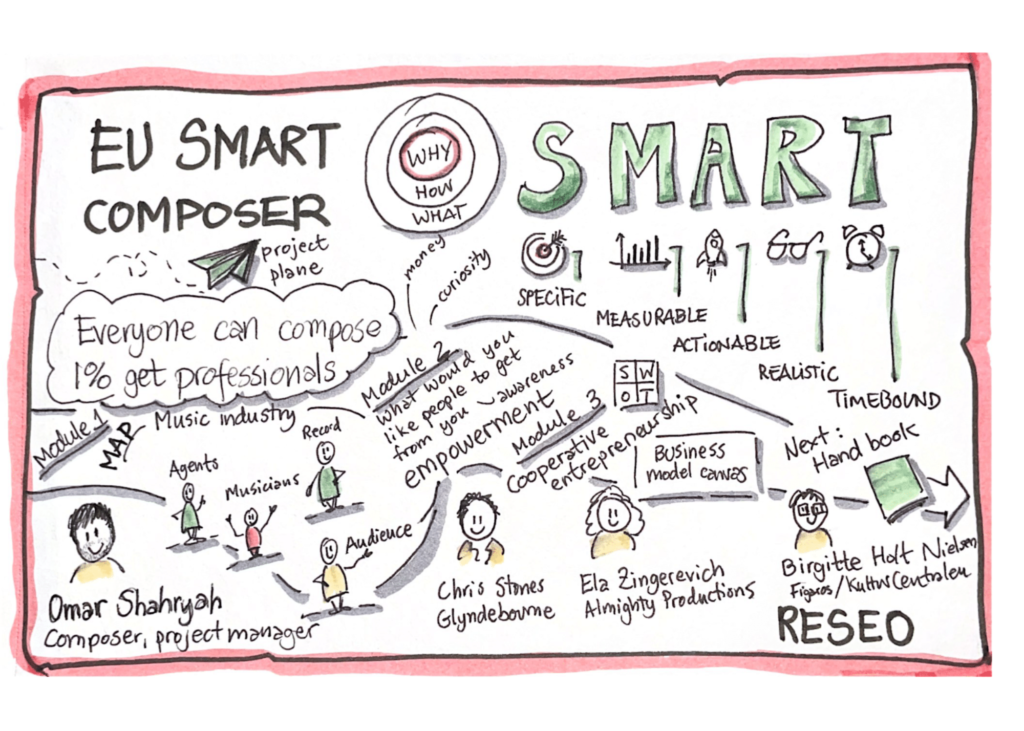 EU SMART
COMPOSER
WHY
HOW
WHAT
SMART
project
plane
money
curiosity
SPECIFIC
MEASURABLE
ACTIONABLE
REALISTIC
TIMEBOUND
Everyone can compose
1% get professionals
Module 1
MAP
Music industry
Agents
Musicians
Record
Audience
Module 2
What would you
like people to get
from you
awareness
empowerment
Module 3
cooperative
entrepreneurship
S W
O T
BUSINESS
model canvas
Next:
Hand book
Omar Shahryah
Composer, project manager
Chris Stones
Glyndebourne
Ela Zingerevich
Almighty Productions
Birgitte Holt Nielsen
Figaros/KulturCentralen
RESEO